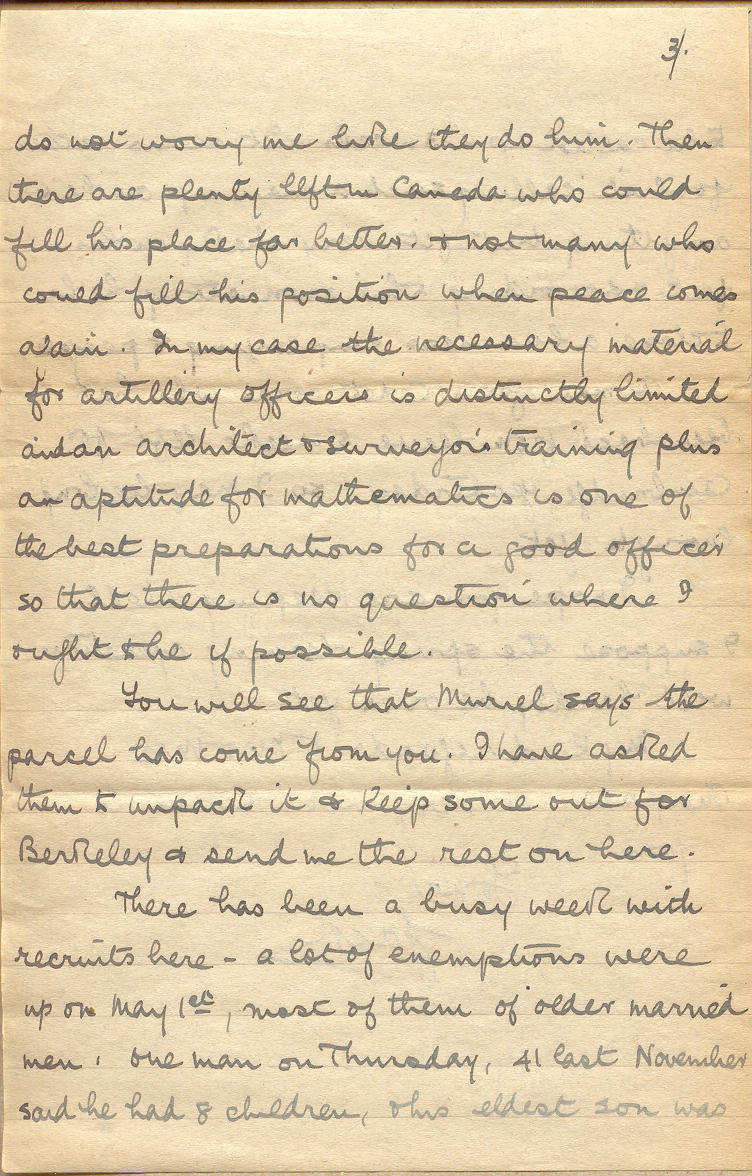 3/.
do not worry me like they do him. Then
there are plenty left in Canada who could
fill his place far better. & not many who
could fill his position when peace comes
again. In my case the necessary material
for artillery officers is distinctly limited
and an architect & surveyor's training plus
an aptitude for mathematics is one of
the best preparations for a good officer
so that there is no question where I
ought to be if possible.
You will see that Muriel says the
parcel has come from you. I have asked
them to unpack it & keep some out for
Berkeley & send me the rest on here.
There has been a busy week with
recruits here - a lot of exemptions were
up on May 1st, most of them of older married
men. One man on Thursday, 41 last November
said he had 8 children, & his eldest son was